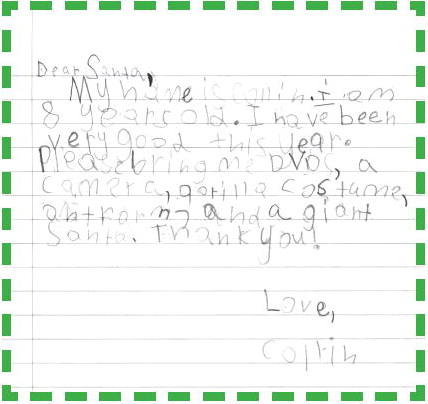 Dear Santa,
My name is Collin. I am
8 years old. I have been
very good this year.
Please bring me DVDS, a
camera, gorilla costume,
and a giant
Santa. Thank you!
Love,
Collin